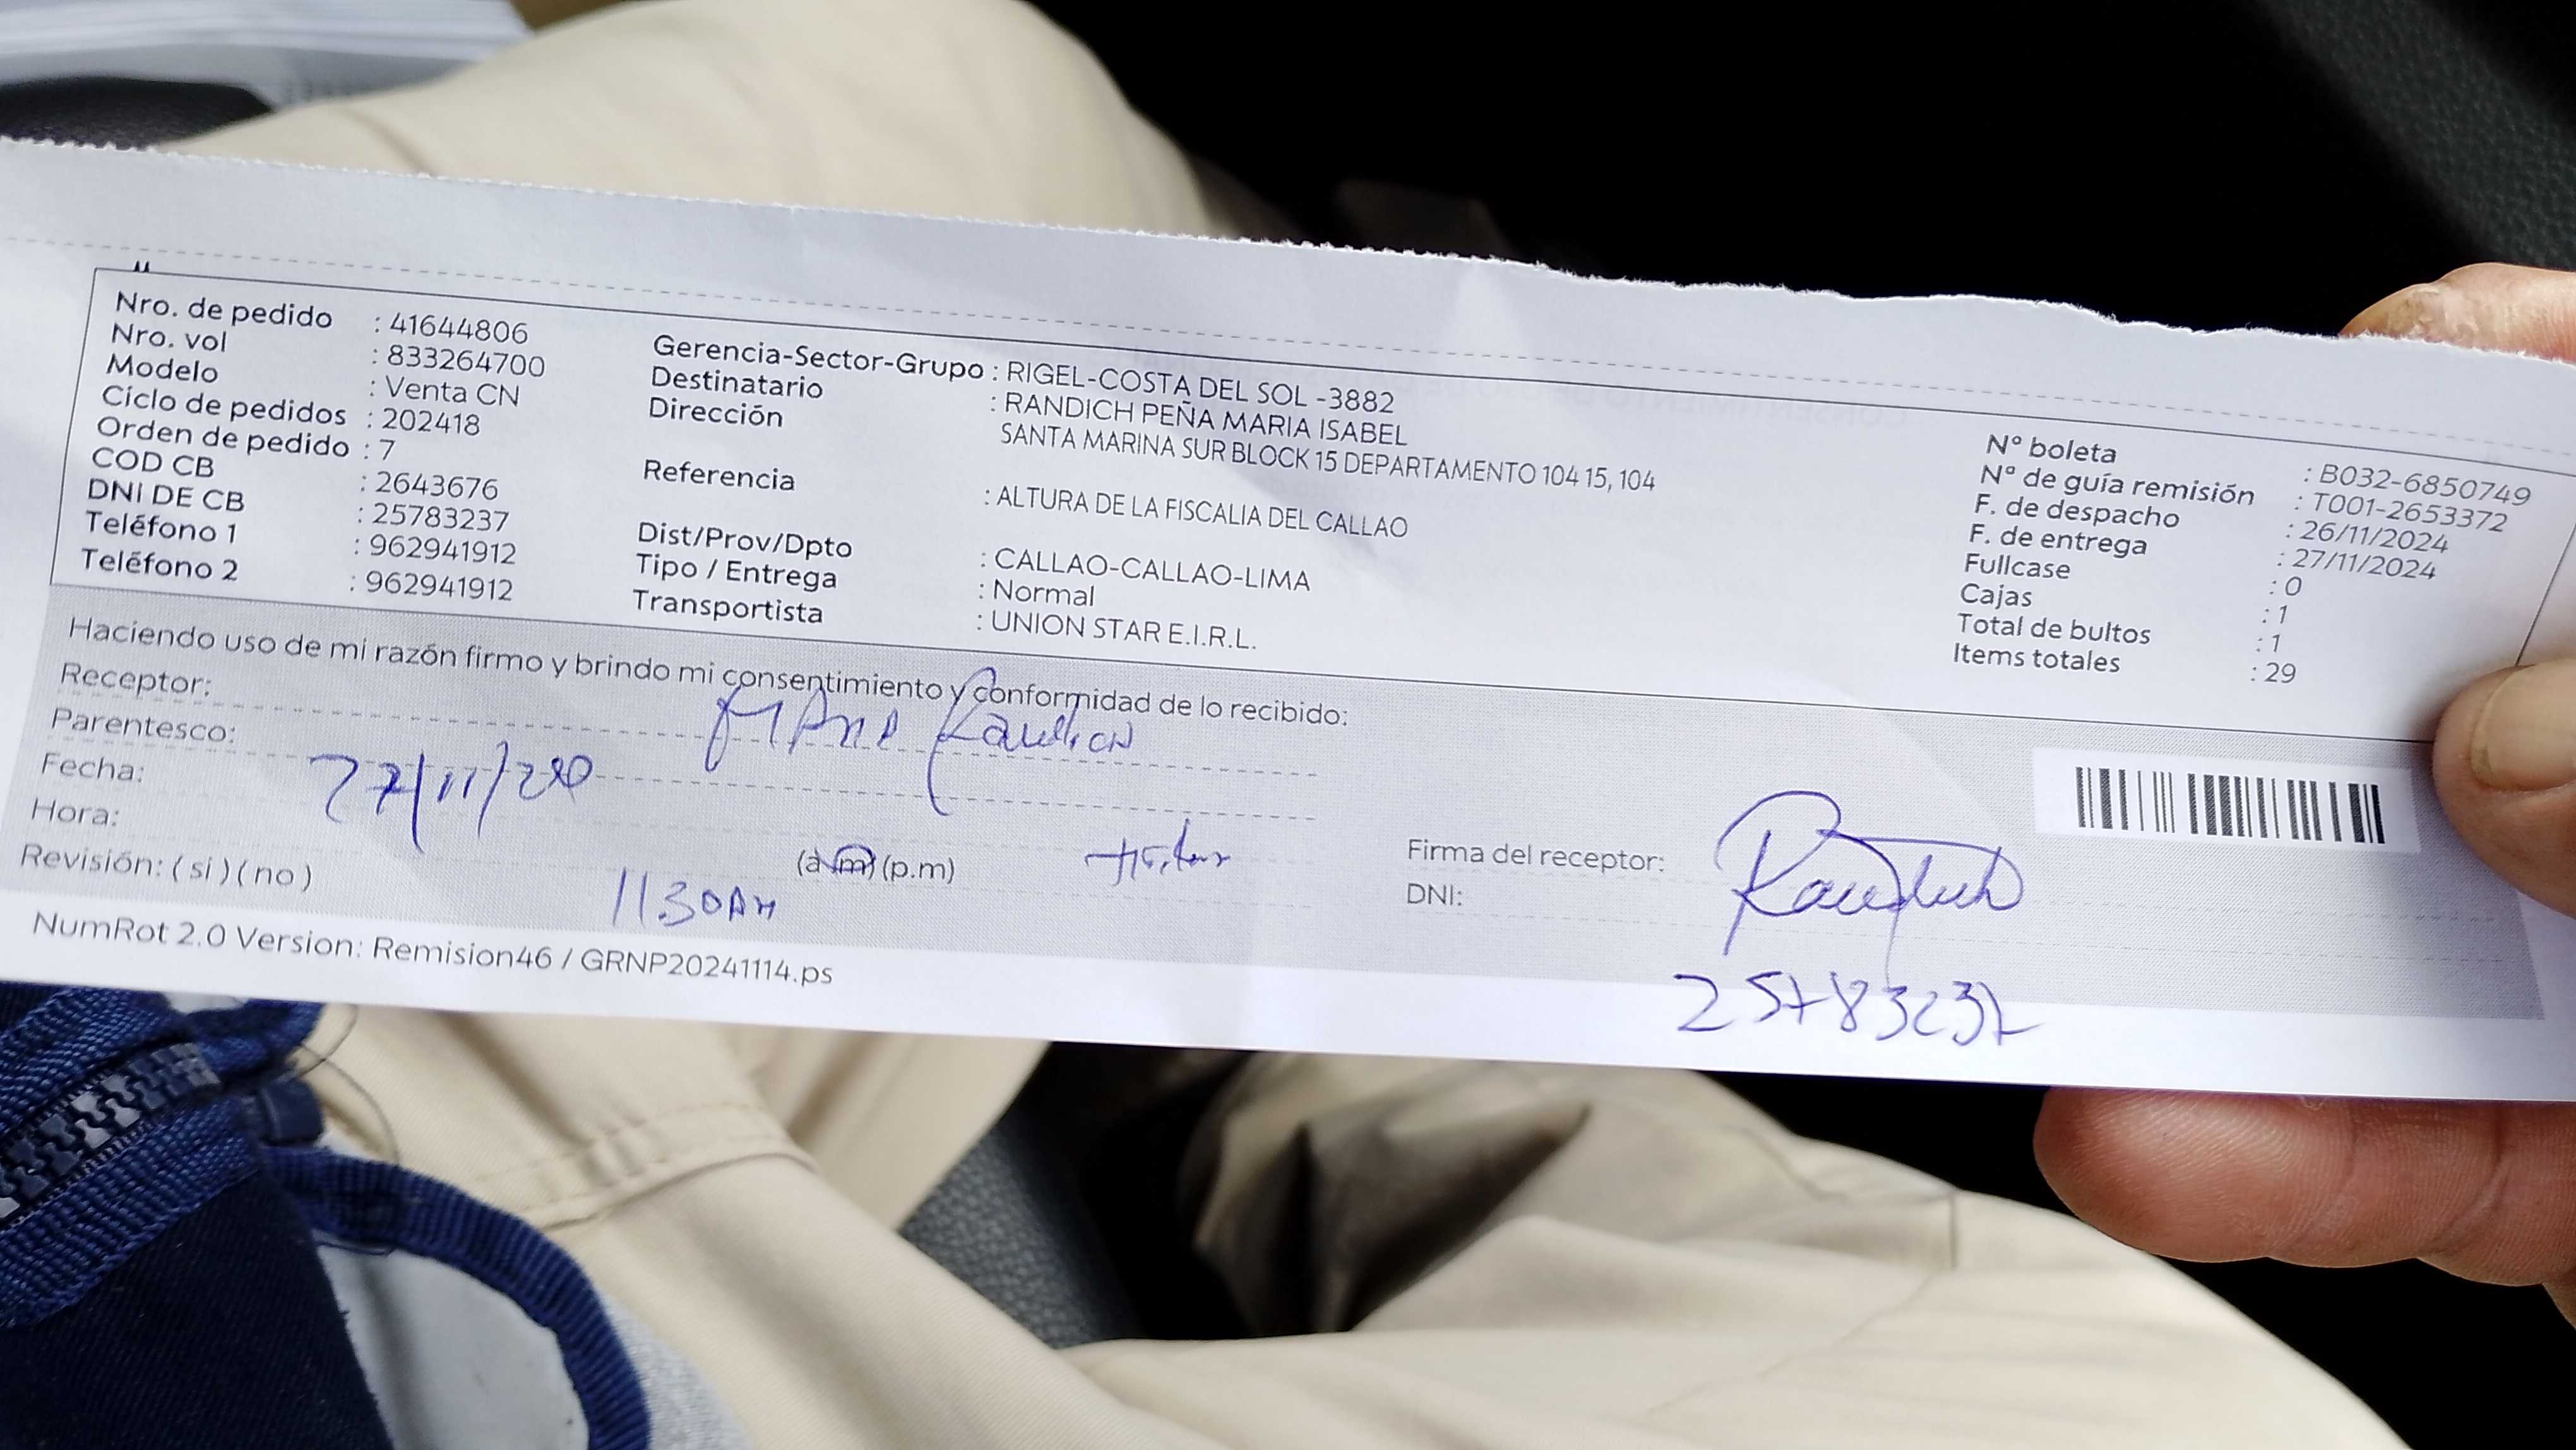 Nro. de pedido : 41644806
Nro. vol : 833264700
Modelo : Venta CN
Ciclo de pedidos : 202418
Orden de pedido : 7
COD CB : 2643676
DNI DE CB : 25783237
Teléfono 1 : 962941912
Teléfono 2 : 962941912
Gerencia-Sector-Grupo : RIGEL-COSTA DEL SOL -3882
Destinatario : RANDICH PEÑA MARIA ISABEL
Dirección SANTA MARINA SUR BLOCK 15 DEPARTAMENTO 104 15, 104
Referencia : ALTURA DE LA FISCALIA DEL CALLAO
Dist/Prov/Dpto : CALLAO-CALLAO-LIMA
Tipo / Entrega : Normal
Transportista : UNION STAR E.I.R.L.
N° boleta : B032-6850749
N° de guía remisión : T001-2653372
F. de despacho : 26/11/2024
F. de entrega : 27/11/2024
Fullcase : 0
Cajas : 1
Total de bultos : 1
Items totales : 29
Haciendo uso de mi razón firmo y brindo mi consentimiento y conformidad de lo recibido:
Receptor: Randich
Parentesco:
Fecha: 27/11/
Hora: 11.30AM (a.m) (p.m)
Revisión: ( si ) ( no )
Firma del receptor: Randich
DNI: 25783237
NumRot 2.0 Version: Remision46 / GRNP20241114.ps